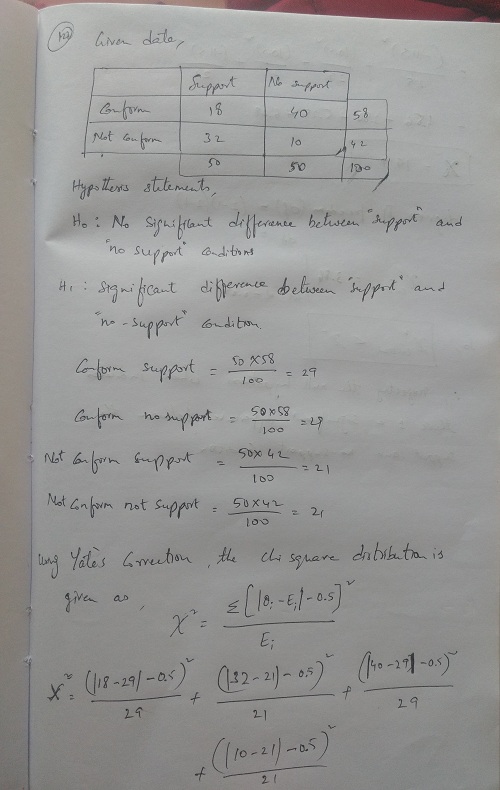 Given data,
Support No support
Conform 18 40 58
Not Conform 32 10 42
50 50 100
Hypothesis statements,
H₀ : No significant difference between "support" and
"no support" conditions
H₁ : Significant difference between "support" and
"no-support" condition.
Conform support = 50×58/100 = 29
Conform no support = 50×58/100 = 29
Not Conform support = 50×42/100 = 21
Not Conform not support = 50×42/100 = 21
Using Yate's Correction, the chi square distribution is
given as,
X² = Σ[|Oᵢ-Eᵢ|-0.5]²/Eᵢ
X² = (|18-29|-0.5)²/29 + (|32-21|-0.5)²/21 + (|40-29|-0.5)²/29
+ (|10-21|-0.5)²/21